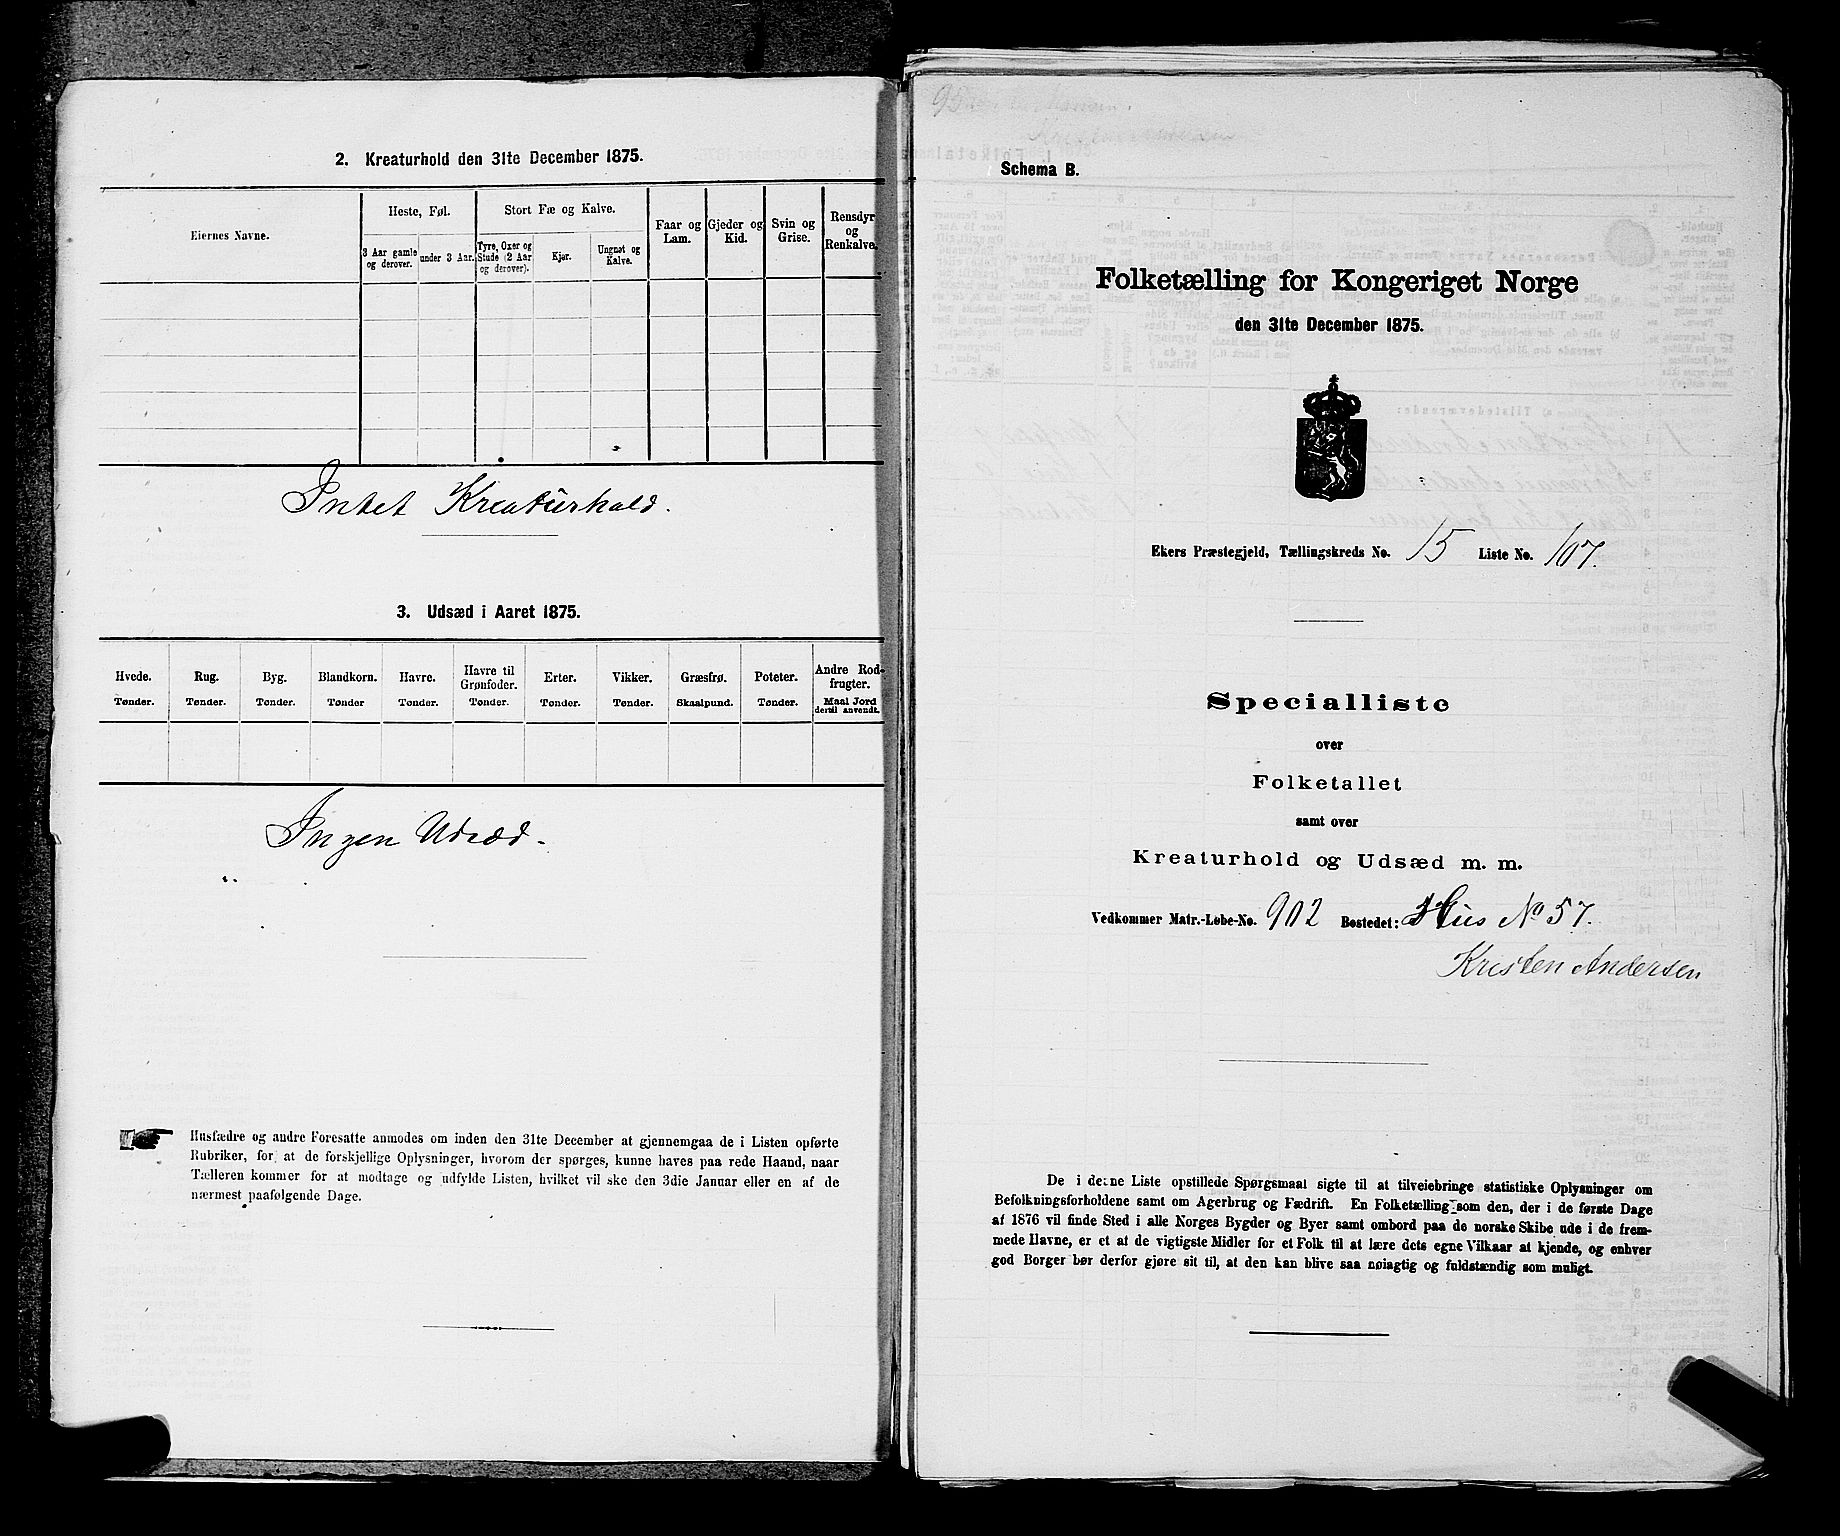 2. Kreaturhold den 31te December 1875.
Eiernes Navne.
Heste, Føl.
Stort Fæ og Kalve.
Faar og Lam.
Gjeder og Kid.
Svin og Grise.
Rensdyr og Renkalve.
3 Aar gamle og derover.
under 3 Aar.
Tyre, Oxer og Stude (2 Aar og derover).
Kjør.
Ungnøt og Kalve.
Intet Kreaturhold.
3. Udsæd i Aaret 1875.
Hvede. Rug. Byg. Blandkorn. Havre. Havre til Grønfoder. Erter. Vikker. Græsfrø. Poteter. Andre Rodfrugter.
Tønder. Tønder. Tønder. Tønder Tønder. Tønder. Tønder. Tønder. Skaalpund. Tønder. Maal Jord dertil anvendt.
Ingen Udsæd.
Husfædre og andre Foresatte anmodes om inden den 31te December at gjennemgaa de i Listen opførte
Rubriker, for at de forskjellige Oplysninger, hvorom der spørges, kunne haves paa rede Haand, naar
Tælleren kommer for at modtage og udfylde Listen, hvilket vil ske den 3die Januar eller en af de
nærmest paafølgende Dage.
Schema B.
Folketælling for Kongeriget Norge
den 31te December 1875.
Ekers Præstegjeld, Tællingskreds No. 15 Liste No. 107.
Specialliste
over
Folketallet
samt over
Kreaturhold og Udsæd m. m.
Vedkommer Matr.-Løbe-No. 902 Bostedet: Hus No 57.
Kristen Andersen
De i denne Liste opstillede Spørgsmaal sigte til at tilveiebringe statistiske Oplysninger om
Befolkningsforholdene samt om Agerbrug og Fædrift. En Folketælling som den, der i de første Dage
af 1876 vil finde Sted i alle Norges Bygder og Byer samt ombord paa de norske Skibe ude i de frem-
mede Havne, er et af de vigtigste Midler for et Folk til at lære dets egne Vilkaar at kjende, og enhver
god Borger bør derfor gjøre sit til, at den kan blive saa nøiagtig og fuldstændig som muligt.